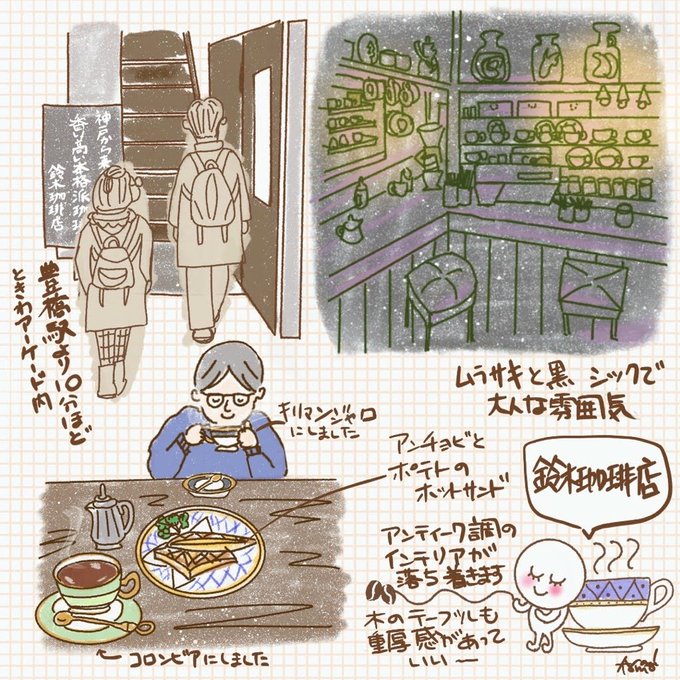 神戸から来た
香り高い本格派珈琲
鈴木珈琲店
豊橋駅より10分ほど
ときわアーケード内
ムラサキと黒 シックで
大人な雰囲気
キリマンジャロ
にしました
アンチョビと
ポテトの
ホットサンド
鈴木珈琲店
アンティーク調の
インテリアが
落ち着きます
木のテーブルも
重厚感があって
いいー
← コロンビアにしました